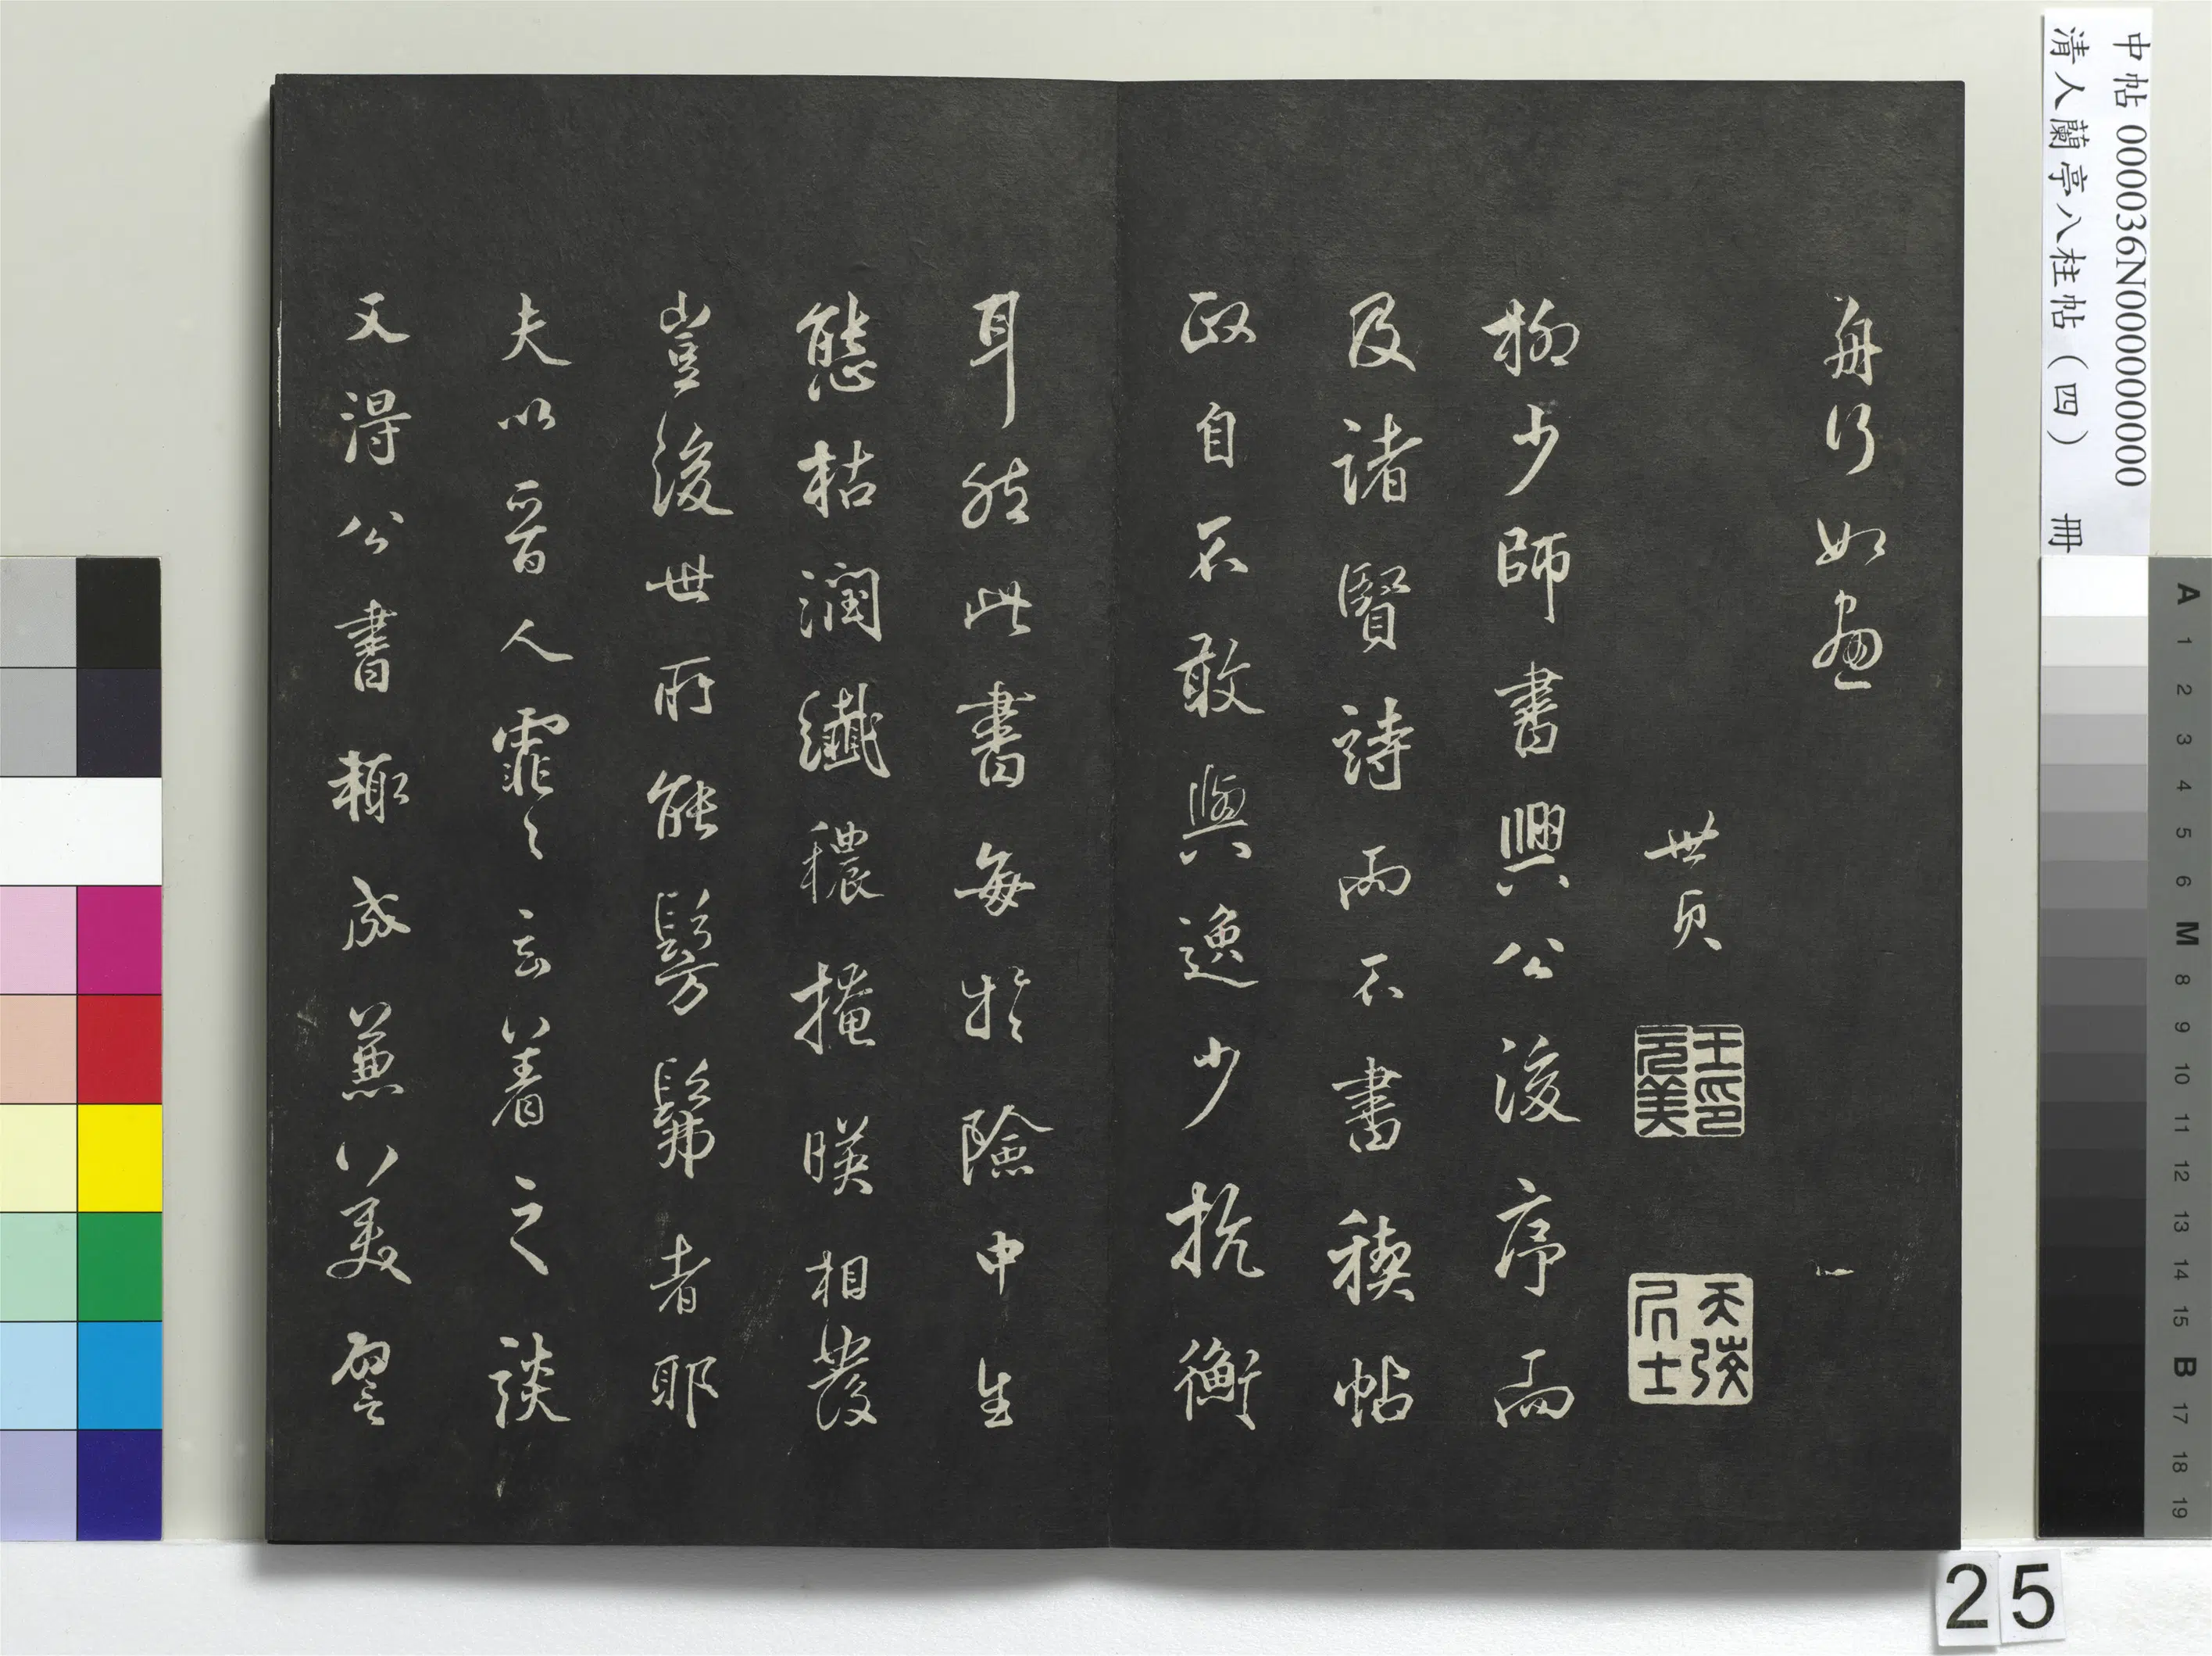 中帖 000036N000000000
清人蘭亭八柱帖（四） 冊
舟行如畫
世貞
王印元美
天弢居士
柳少師書興公後序而
及諸賢詩而不書稧帖
政自不敢與逸少抗衡
耳然此書每於險中生
態枯潤纖穠掩暎相發
豈後世所能髣髴者耶
夫以晉人霏〻玄着之談
又得公書輙成兼美譬
A 1 2 3 4 5 6 M 8 9 10 11 12 13 14 15 B 17 18 19
25